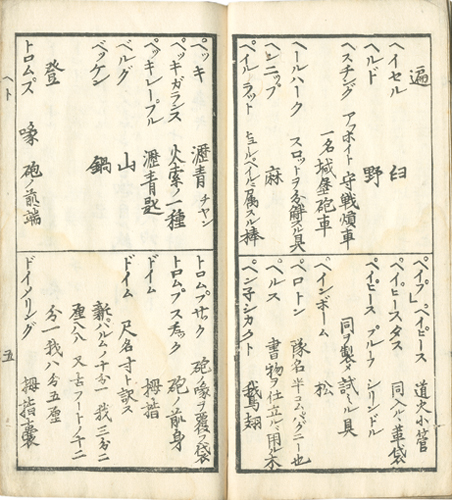 遍
ヘイセル 臼
ヘルド 野
ヘスチング アッホイト守戦煩車
一名城堡砲車
ヘールハーク スロットヲ分解スル具
ヘンニップ 麻
ペイルラット ヒュールペイルニ属スル棒
ペイプ」ペイピース 道火小管
ペイピースタス 同入ルヽ革袋
ペイピース プルーフ シリンドル
同ヲ製メ試ミル具
ペインボーム 松
ペロトン 隊名半コムパグニー也
ペルス 書物ヲ仕立ル用ル木
ペン子シカクト 鵞翅
ペッキ 瀝青 チヤン
ペッキガランス 火索ノ一種
ペッキレープル 瀝青匙
ベルグ 山
ベッケン 鍋
登
トロムプズ 喙 砲ノ前端
トロムプサック 砲ノ喙ヲ覆フ袋
トロムプスチュック 砲ノ前身
ドイム 拇指
ドイム 尺名寸ト訳ス
新パルムノ十分一我三分二
厘八八 又古フートノ十二
分一我八分五厘
ドイメリング 拇指嚢
ヘト
五